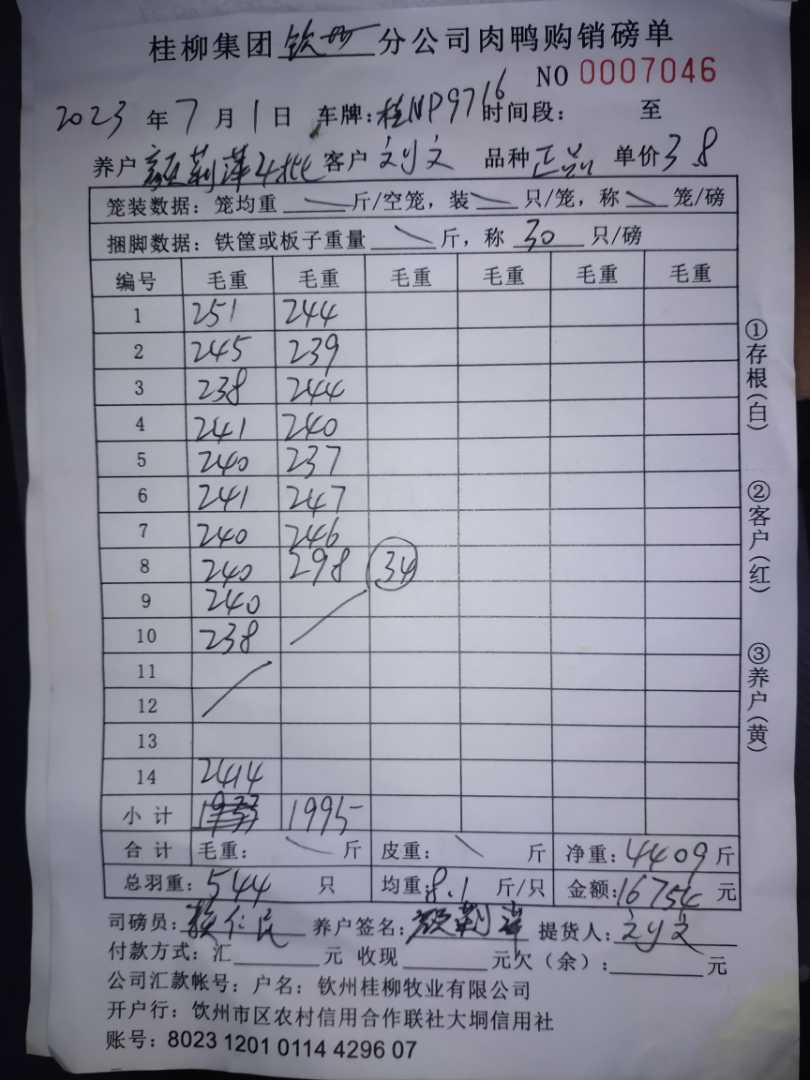 桂柳集团 钦州 分公司肉鸭购销磅单
NO 0007046
2023 年 7 月 1 日 车牌:桂NP9716 时间段: 至
养户 颜莉萍 客户 刘文 品种 正品 单价 3.8
笼装数据: 笼均重 斤/空笼, 装 只/笼, 称 笼/磅
捆脚数据: 铁筐或板子重量 斤, 称 30 只/磅
编号 毛重 毛重 毛重 毛重 毛重 毛重
1 251 244
2 245 239
3 238 244
4 241 240
5 240 237
6 241 247
7 240 246
8 240 298 34
9 240
10 238
11
12
13
14 2414
小 计 1995
合 计 毛重: 斤 皮重: 斤 净重: 4409 斤
总羽重: 544 只 均重: 8.1 斤/只 金额: 16754 元
司磅员: 养户签名: 颜莉萍 提货人: 刘文
付款方式: 汇 元 收现 元欠(余): 元
公司汇款帐号: 户名: 钦州桂柳牧业有限公司
开户行: 钦州市区农村信用合作联社大垌信用社
账号: 8023 1201 0114 4296 07
①存根(白)
②客户(红)
③养户(黄)